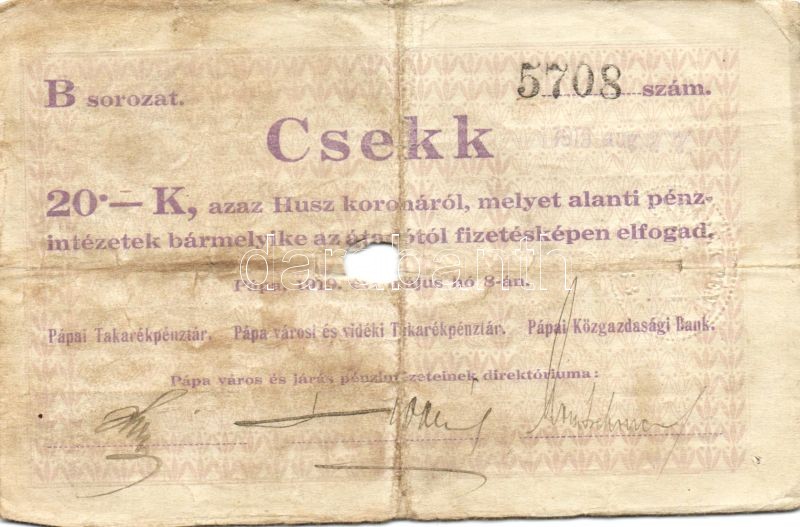 B sorozat. 5708 szám.
Csekk
20·— K, azaz Husz koronáról, melyet alanti pénz-
intézetek bármelyike az fizetésképen elfogad.
Pápa, 1919. hó 8-án.
Pápai Takarékpénztár. Pápa városi és vidéki Takarékpénztár. Pápai Közgazdasági Bank.
Pápa város és járás pénzintézeteinek direktóriuma:
darabanth